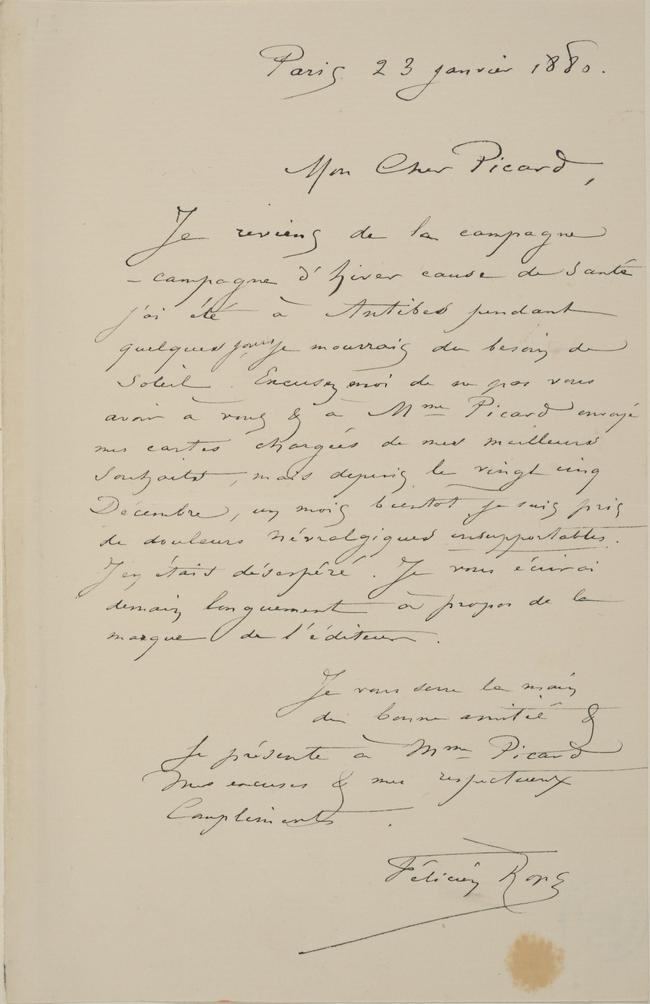 Paris 23 janvier 1880.
Mon Cher Picard,
Je reviens de la campagne
– campagne d'hiver cause de Santé
j'ai été à Antibes pendant
quelques jours je mourrais du besoin de
Soleil. Excusez moi de ne pas vous
avoir à vous & à Mme Picard envoyé
mes cartes chargées de mes meilleurs
Souhaits, mais depuis le vingt cinq
Décembre, un mois bientot je suis pris
de douleurs névralgiques insupportables.
J'en étais désespéré. Je vous écrirai
demain longuement à propos de la
marque de l'éditeur.
Je vous serre la main
de bonne amitié &
Je présente à Mme Picard
mes excuses & mes respectueux
Compliments.
Félicien Rops